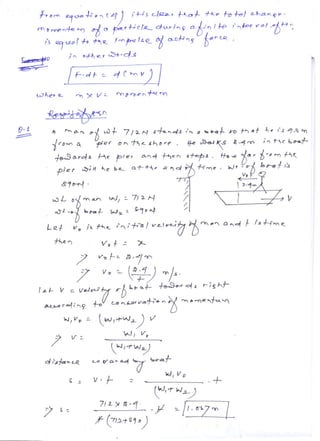 From equation (4) it is clear that the total change in
momentum of a particle during a finite interval of time
is equal to the impulse of acting force.
in other words
F·dt = d(mv)
where m × v = momentum
Q-1 A man of wt 712 N stands in a boat so that he is 4.5 m
from a pier on the shore. He walks 2.4 m in the boat
towards the pier and then stops. How far from the
pier will he be at the end of time. wt of boat is
890 N.
wt of man W₁ = 712 N
wt of boat W₂ = 890 N
Let V₀ is the initial velocity of man and t is time
then V₀t = x
⇒ V₀t = 2.4 m
⇒ V₀ = (2.4/t) m/s.
Let V = velocity of boat towards right
according to conservation of momentum
W₁V₀ = (W₁+W₂) V
⇒ V = W₁V₀/(W₁+W₂)
distance covered by boat
S = V·t = W₁V₀/(W₁+W₂) · t
⇒ S = 712 × 2.4/t (712+890) · t = 1.067 m